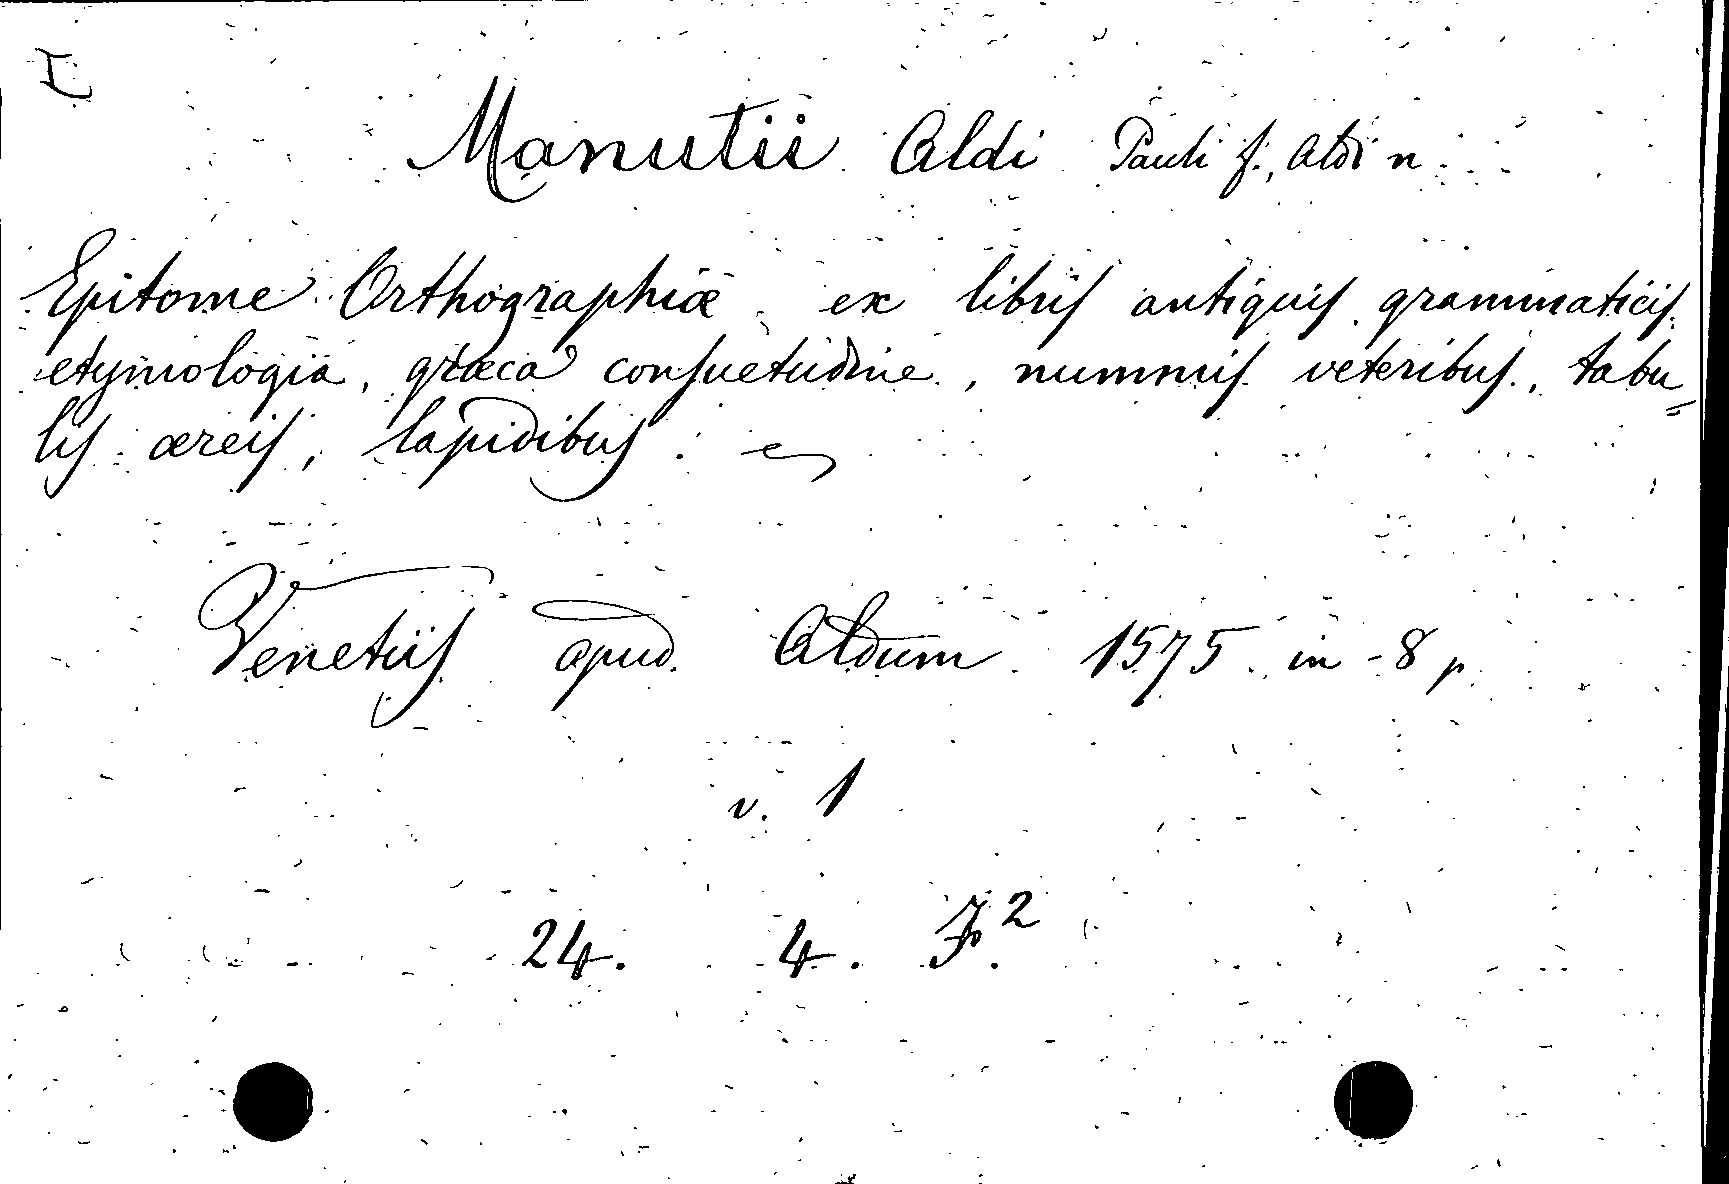 I
Manutii Aldi Pauli f., Aldi n.
Epitome Orthographiæ ex libris antiquis grammaticis
etymologia, græca consuetudine, nummis veteribus, tabu
lis æreis, lapidibus.
Venetiis apud. Aldum. 1575. in-8 p.
v. 1
24. 4. F.²